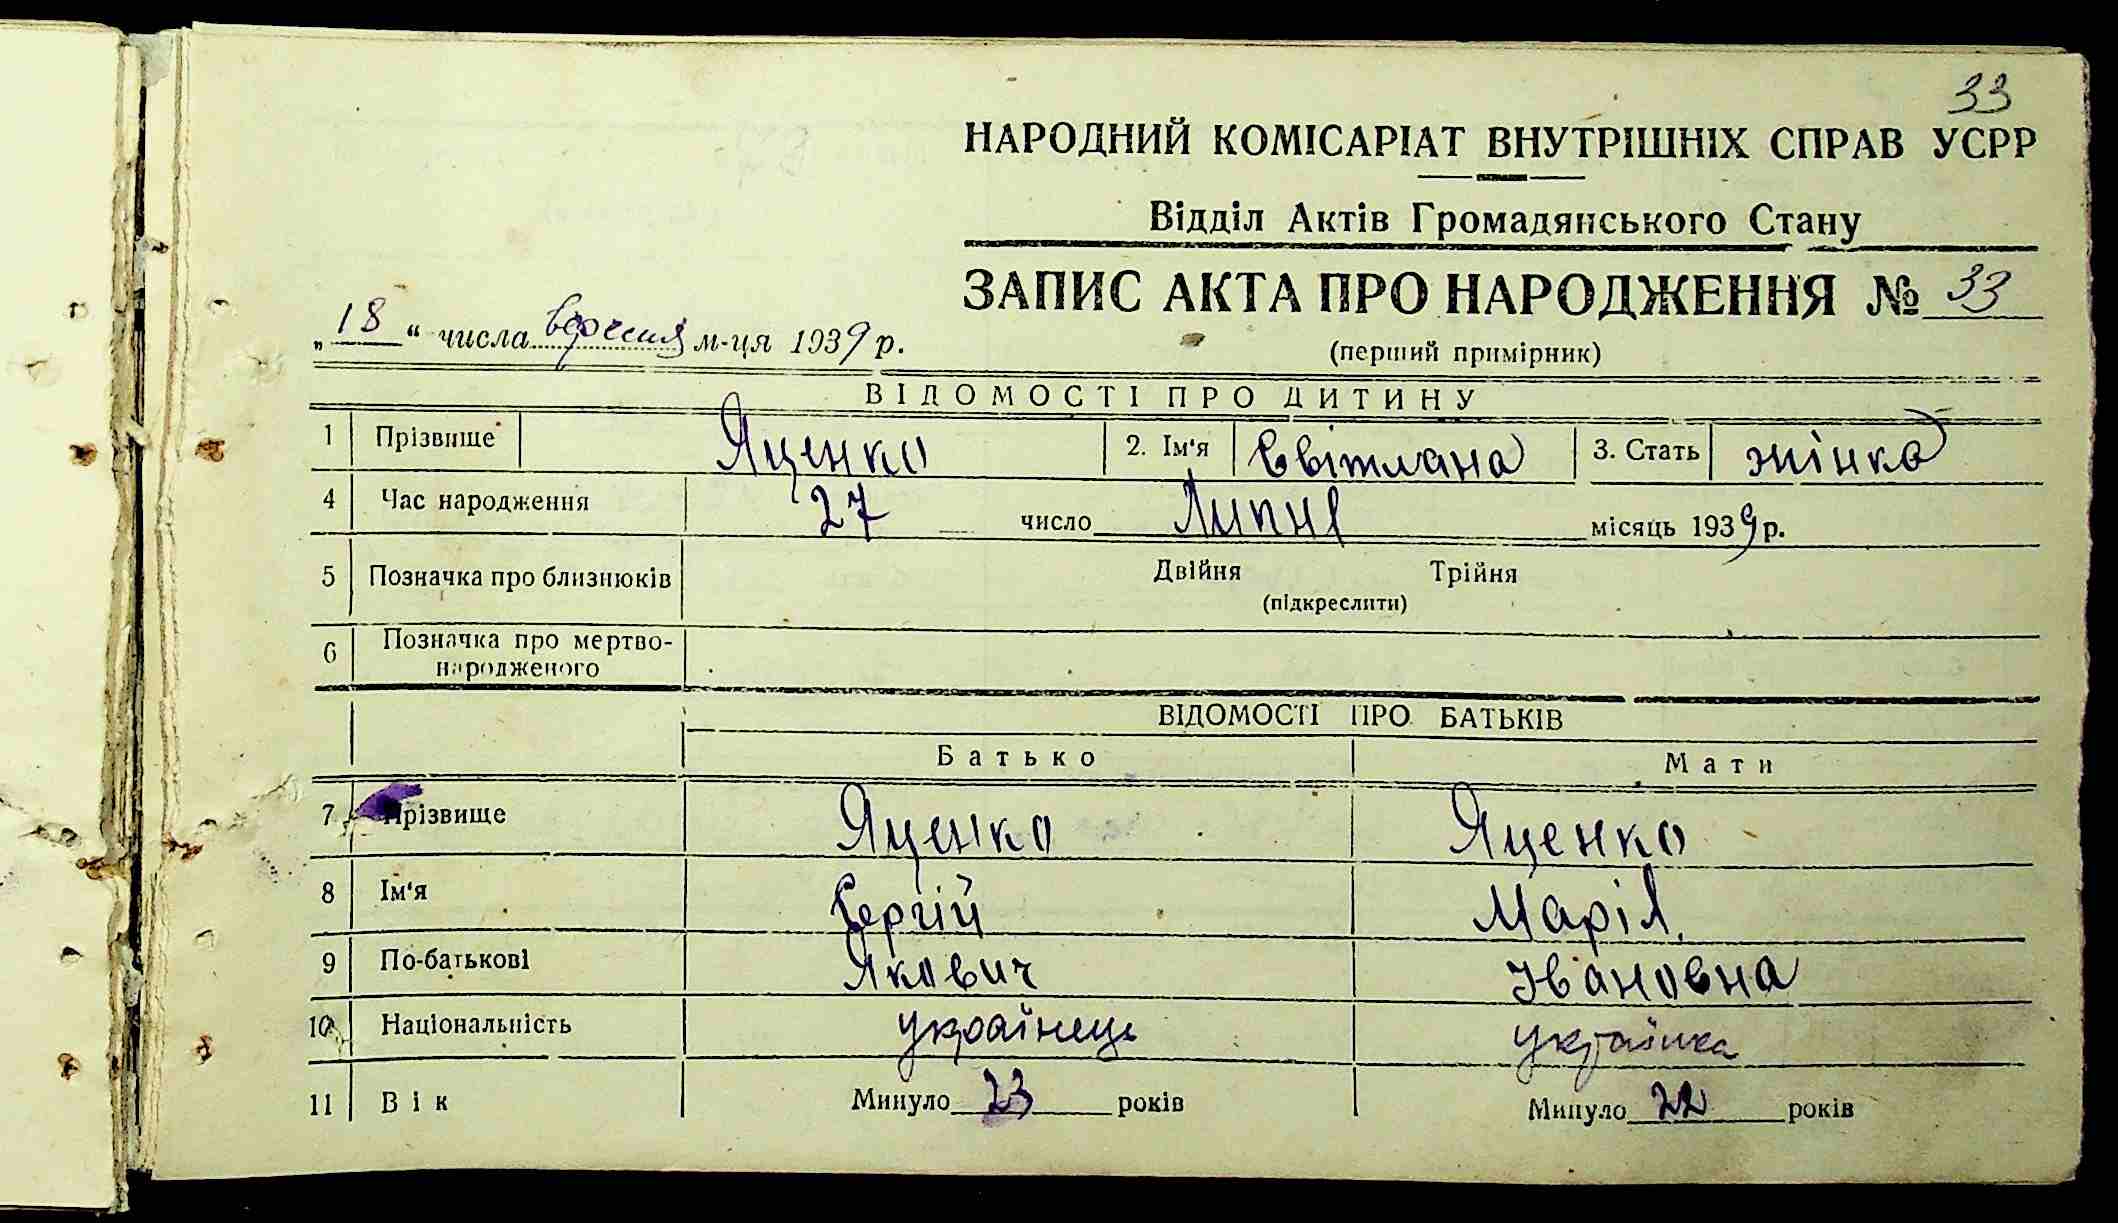 33
НАРОДНИЙ КОМІСАРІАТ ВНУТРІШНІХ СПРАВ УСРР
Відділ Актів Громадянського Стану
ЗАПИС АКТА ПРО НАРОДЖЕННЯ № 33
„18“ числа вересня м-ця 1939 р.
(перший примірник)
ВІДОМОСТІ ПРО ДИТИНУ
1 Прізвище Яценко 2. Ім'я Світлана 3. Стать жінка
4 Час народження 27 число Липня місяць 1939 р.
5 Позначка про близнюків Двійня Трійня
(підкреслити)
6 Позначка про мертво-
народженого
ВІДОМОСТІ ПРО БАТЬКІВ
Батько Мати
7 Прізвище Яценко Яценко
8 Ім'я Сергій Марія
9 По-батькові Якович Івановна
10 Національність українець українка
11 Вік Минуло 23 років Минуло 22 років